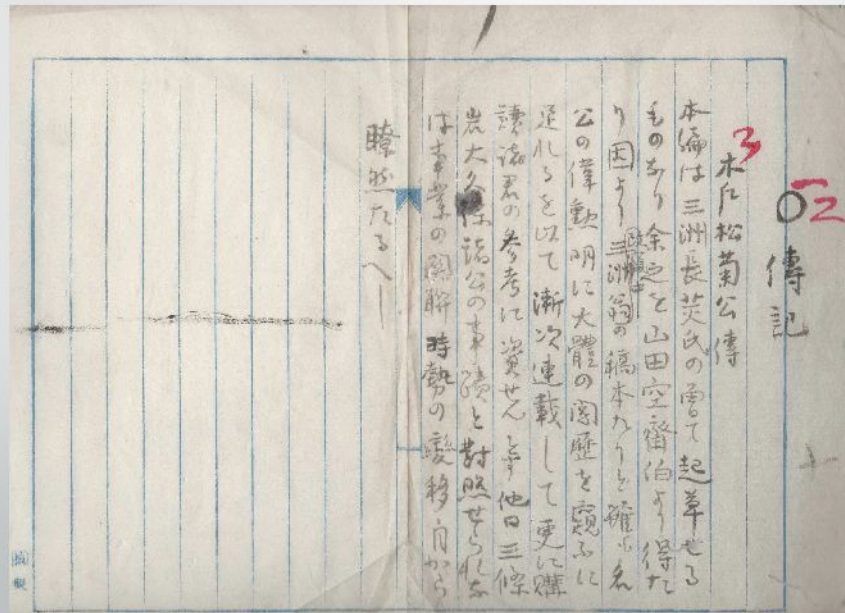 傳記
木戸松菊公傳
本編は三洲長炗氏の曽て起草せる
ものなり余之を山田空齋伯より得た
り固より三洲翁の稿本なりと雖も
公の偉勲明に大體の閲歴を窺ふに
足れるを以て漸次連載して更に購
讀諸君の参考に資せんとす他日三條
岩大久保諸公の事蹟と對照せられな
は事業の関聯時勢の変移自から
瞭然たるへし